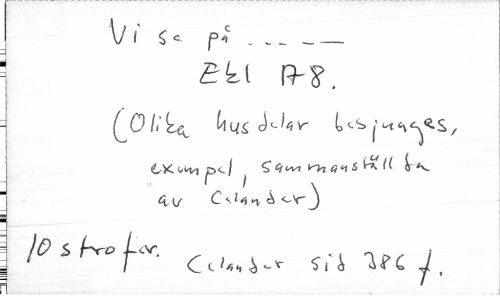 Vi se på ..... —
Ekl A8.
(Olika husdelar besjunges,
exempel, sammanställda
av Celander)
10 strofer.
Celander sid 386 f.